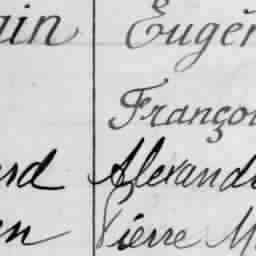 ain Eugèn
Franço
ard Alexand
en Pierre M